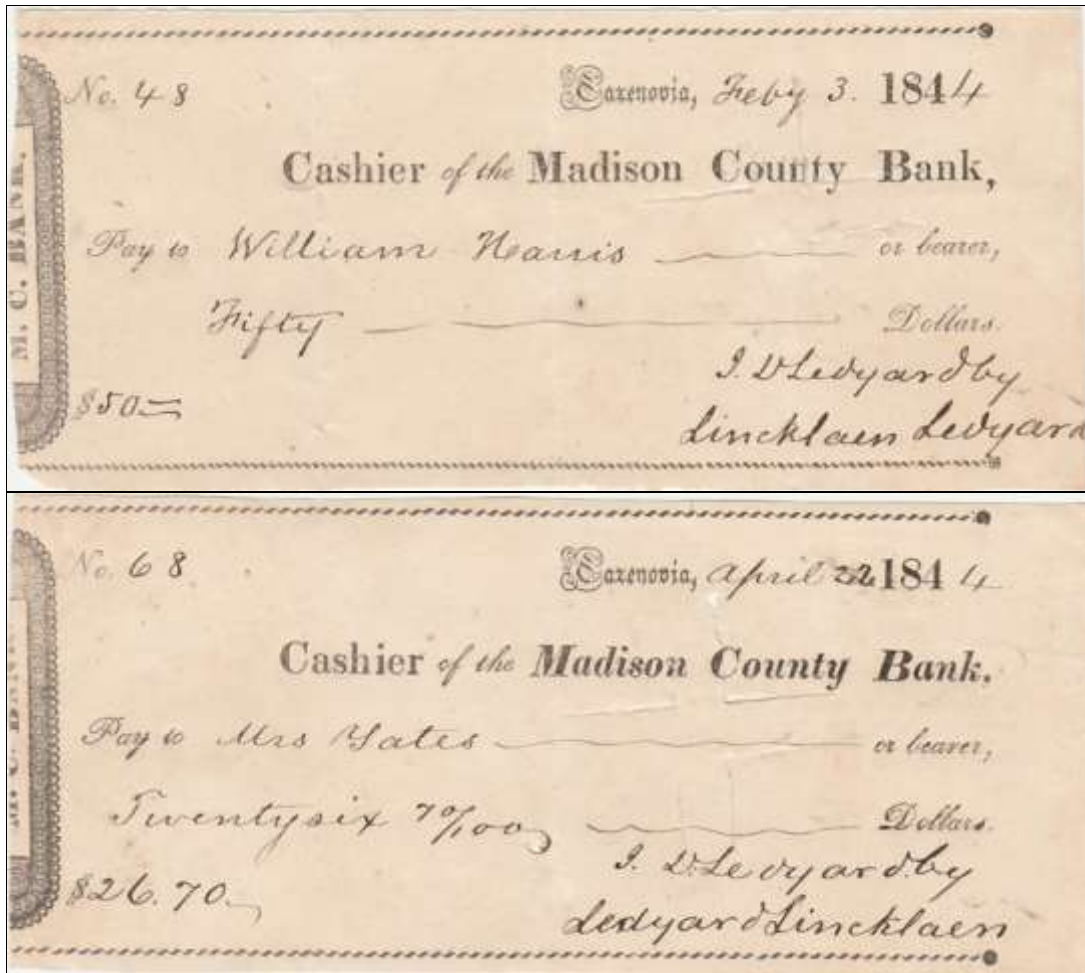 M. C. BANK.
No. 48 Cazenovia, Feby 3. 1844
Cashier of the Madison County Bank,
Pay to William Harris or bearer,
Fifty Dollars.
J. D Ledyard by
$50
Lincklaen Ledyard
No. 68 Cazenovia, April 22 1844
Cashier of the Madison County Bank.
Pay to Mrs Yates or bearer,
Twentysix 70/100 Dollars.
J. D. Ledyard by
$26.70
Ledyard Lincklaen